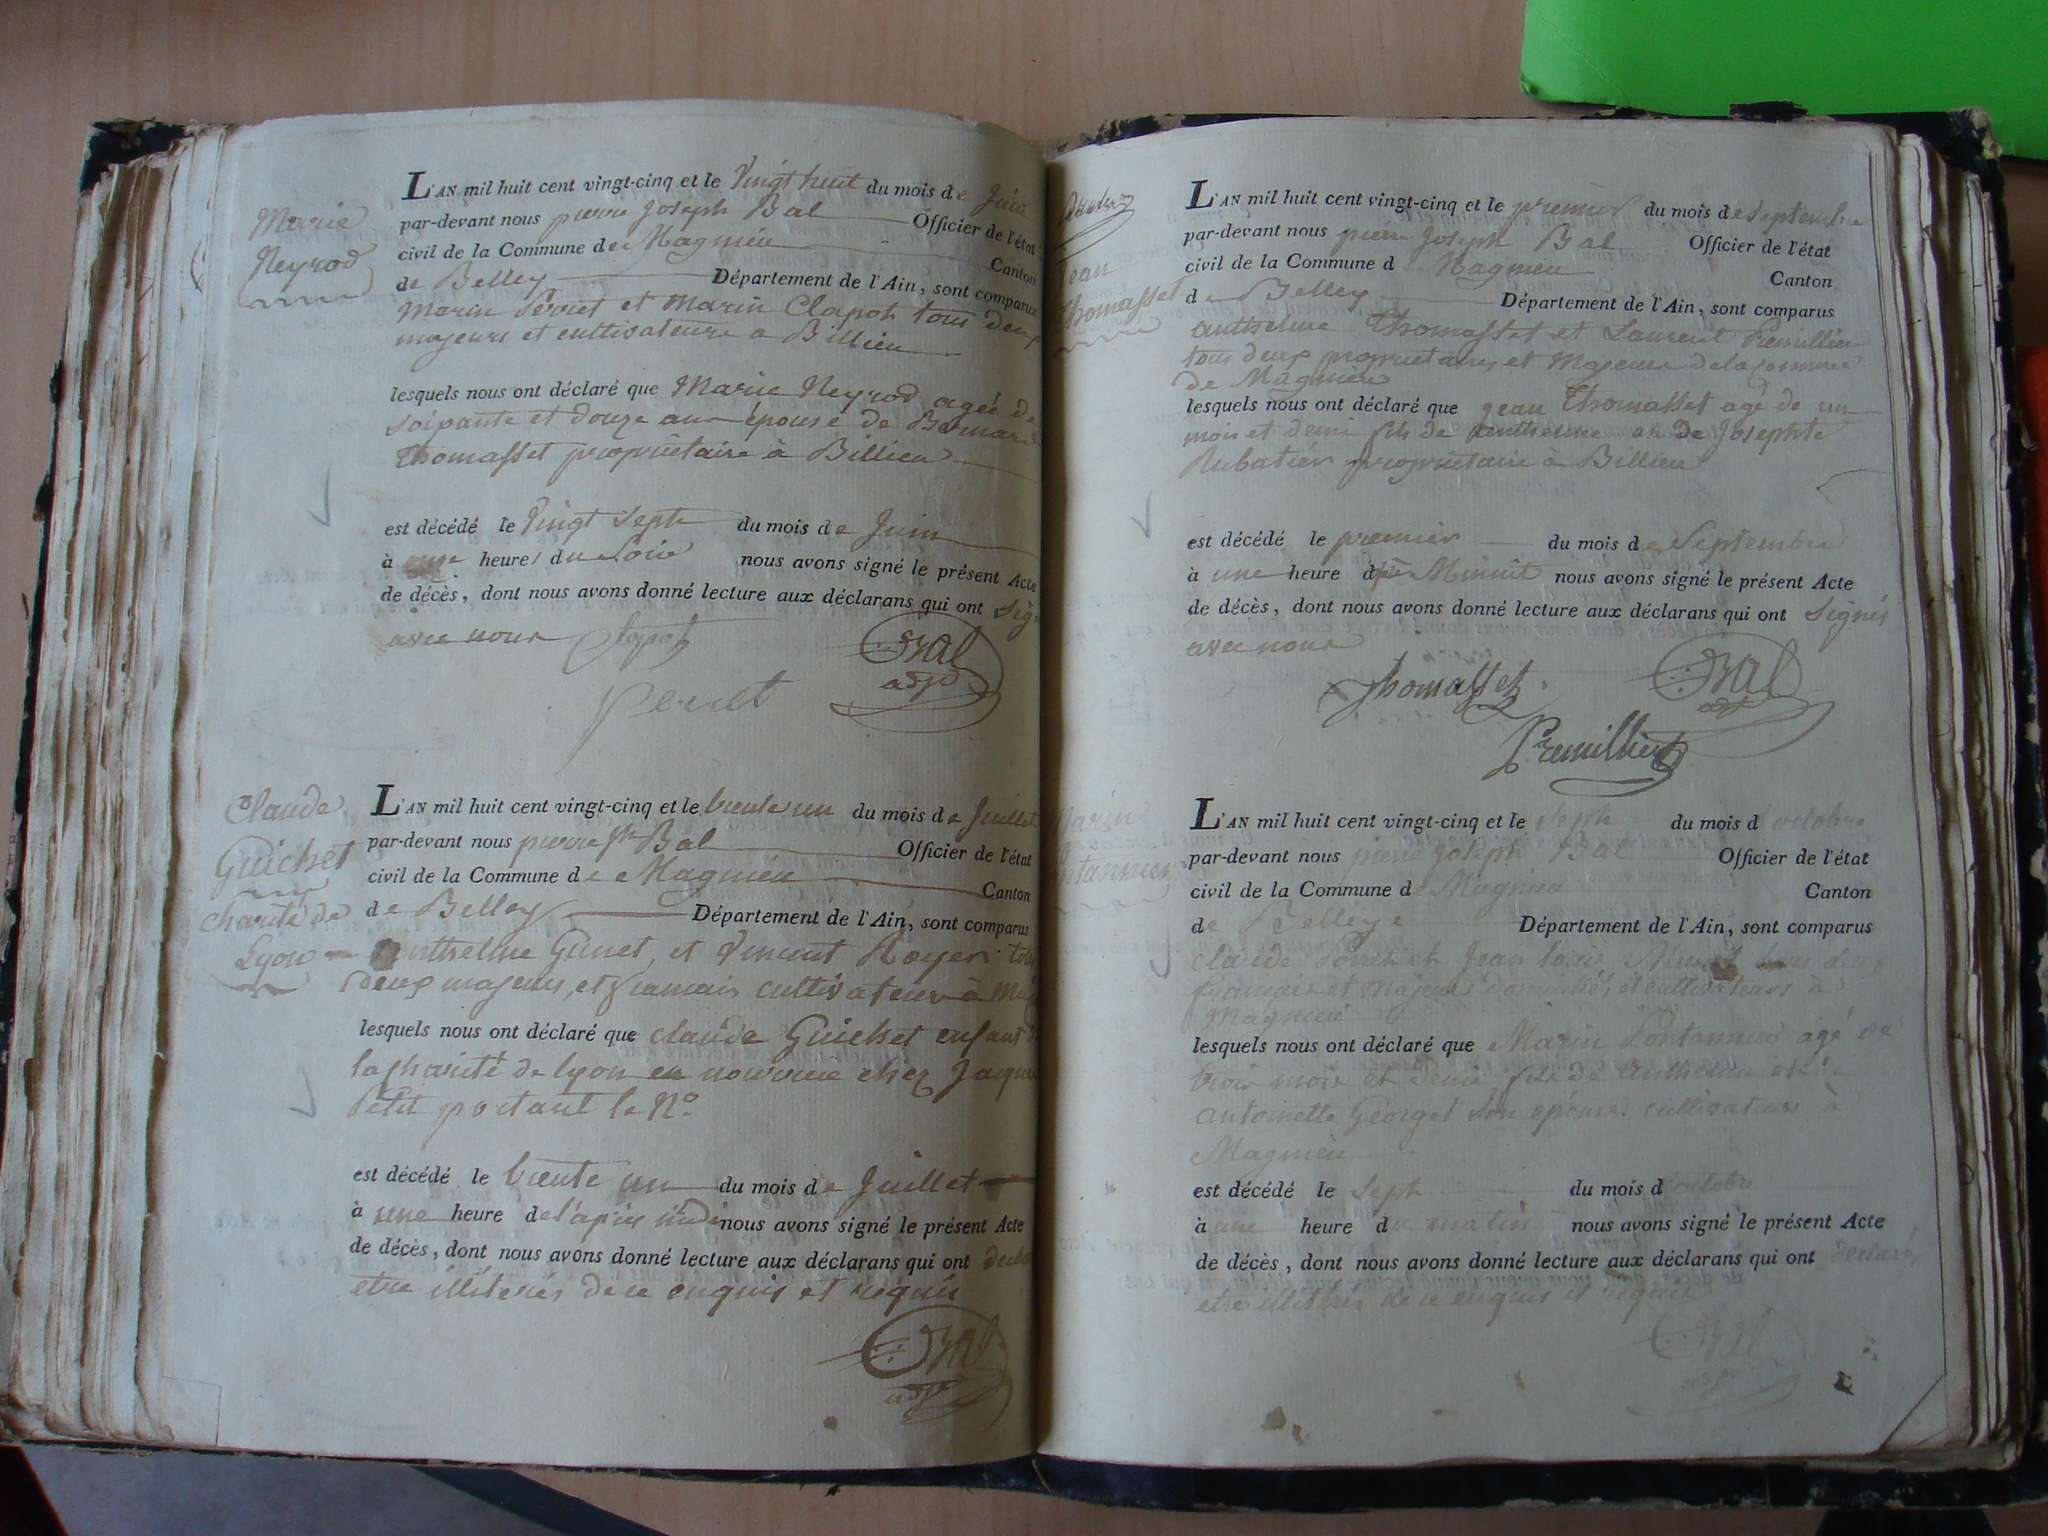 Marie
Neyrod
L'AN mil huit cent vingt-cinq et le Vingt huit du mois de Juin
par-devant nous pierre Joseph Bal Officier de l'état
civil de la Commune de Magnieu Canton
de Belley Département de l'Ain, sont comparus
Marin Perret et Marin Clapot tous deux
majeurs et cultivateurs a Billieu
lesquels nous ont déclaré que Marie Neyrod agée de
soixante et douze ans épouse de Bernard
Thomasset propriétaire à Billieu
est décédé le Vingt Sept du mois de Juin
à une heure du Soir nous avons signé le présent Acte
de décès, dont nous avons donné lecture aux déclarans qui ont Sig
avec nous Clapot Bal
adjt
Perret
Claude
Guichet
charité de
Lyon
L'AN mil huit cent vingt-cinq et le trente un du mois de Juillet
par-devant nous pierre jph Bal Officier de l'état
civil de la Commune de Magnieu Canton
de Belley Département de l'Ain, sont comparus
anthelme Guinet, et Vincent Royer tous
deux majeurs, et francais cultivateurs à Mag
lesquels nous ont déclaré que claude Guichet enfant de
la charité de lyon en nourrice chez Jaques
Petit portant le No
est décédé le trente un du mois de Juillet
à une heure de l'après midi nous avons signé le présent Acte
de décès, dont nous avons donné lecture aux déclarans qui ont decla
etre illiterés de ce enquis et requis
Bal
adjt
Jean
Thomasset
L'AN mil huit cent vingt-cinq et le premier du mois de Septembre
par-devant nous pierre Joseph Bal Officier de l'état
civil de la Commune d Magnieu Canton
de Belley Département de l'Ain, sont comparus
anthelme Thomasset et Laurent Premillieu
tous deux proprietaires et Majeurs de la commune
de Magnieu
lesquels nous ont déclaré que jean Thomasset agé de un
mois et demi fils de anthelme et de Josephte
Rubatier proprietaire à Billieu
est décédé le premier du mois de Septembre
à une heure d Minuit nous avons signé le présent Acte
de décès, dont nous avons donné lecture aux déclarans qui ont Signés
avec nous
Thomasset Bal
adjt
Premillieu
Marin
Fontannier
L'AN mil huit cent vingt-cinq et le Sept du mois d octobre
par-devant nous pierre joseph Bal Officier de l'état
civil de la Commune de Magnieu Canton
de Belley Département de l'Ain, sont comparus
claude Perret et Jean louis tous deux
francais et Majeurs domiciliés et cultivateurs à
Magnieu
lesquels nous ont déclaré que Marin Fontannier agé de
trois mois et demi fils de anthelme et
antoinette Georget son epouse cultivateurs à
Magnieu
est décédé le Sept du mois d octobre
à une heure du matin nous avons signé le présent Acte
de décès, dont nous avons donné lecture aux déclarans qui ont déclaré
etre illitérés de ce enquis et requis
Bal
adjt